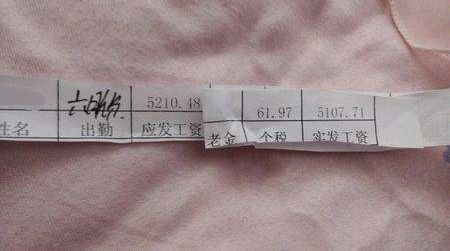 5210.48 61.97 5107.71
姓名 出勤 应发工资 老金 个税 实发工资